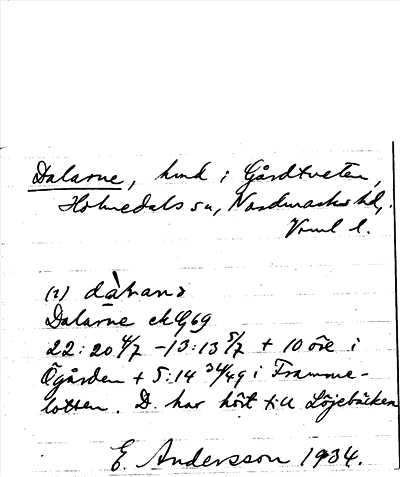 Dalarne, hmd i Gårdtveten,
Holmedals sn, Nordmarks hd,
Vrml l.
(2) dàɭana
Dalarne ek G69
22:20 4/7 - 13:13 5/7 + 10 öre i
Ögården + 5:14 34/49 i Framme-
lotten. D. har hört till Löjebäcken
E. Andersson 1934.